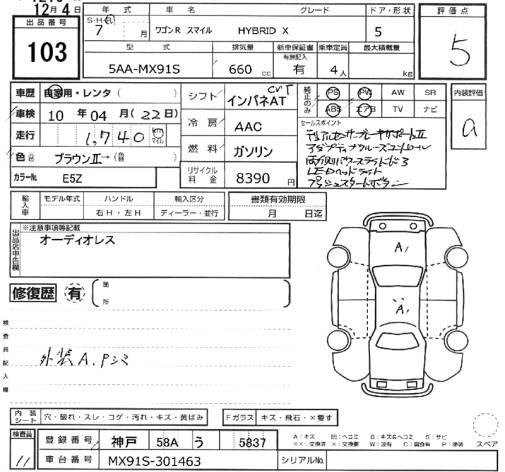 12月4日
出品番号
103
年式 車名 グレード ドア・形状
S・H・R
7 月 ワゴンR スマイル HYBRID X 5
型式 排気量 新車保証書 乗車定員 最大積載量
有無記入
5AA-MX91S 660 cc 有 4人 kg
評価点
5
車歴 自家用・レンタ( )
車検 10年04月(22日)
走行 1,740
色 ブラウンⅡ→( )
カラーNo. E5Z
シフト インパネAT CVT
冷房 AAC
燃料 ガソリン
リサイクル料金 8390円
純正のみ
PS PW AW SR
ABS エアB TV ナビ
セールスポイント
デュアルセンサーブレーキサポートⅡ
アダプティブクルーズコントロール
両側パワースライドドア
LEDヘッドライト
プッシュスタートボタン
内装評価
a
輸入車 モデル年式 ハンドル 輸入区分 書類有効期限
右H・左H ディーラー・並行 月 日迄
出品店申告欄
※注意事項等記載
オーディオレス
修復歴 有 箇所
検査員記入欄
外装A,Pシミ
A,
A,
内装シート 穴・破れ・スレ・コゲ・汚れ・キズ・黄ばみ
Fガラス キズ・飛石・X要す
検査員
11
登録番号 神戸 58A う 5837
車台番号 MX91S-301463
シリアルNo.
A:キズ U:ヘコミ B:キズ&ヘコミ S:サビ
XX:交換済 X:要交換 W:波有 C:腐食有 P:塗装
スペア